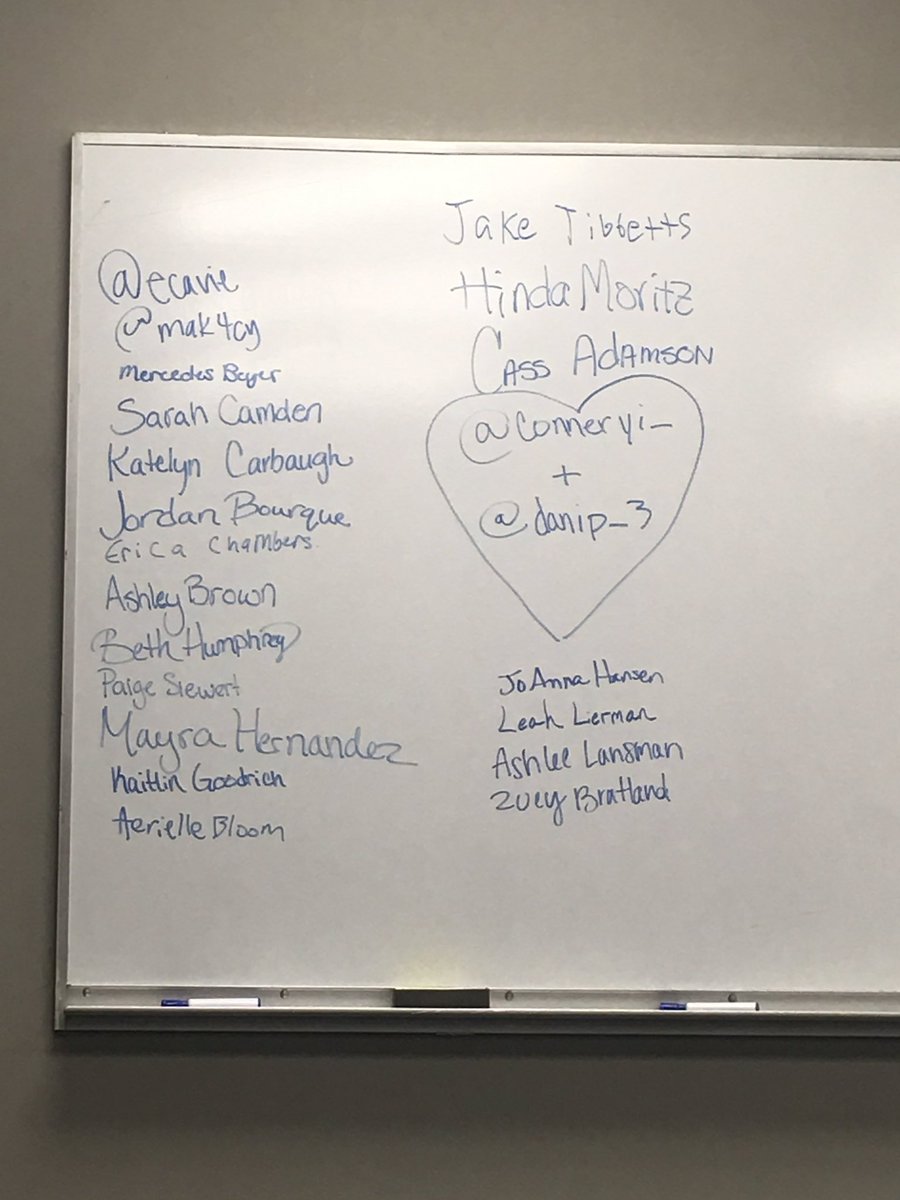 @ecavie
@mak4cy
Mercedes Beyer
Sarah Camden
Katelyn Carbaugh
Jordan Bourque
Erica Chambers
Ashley Brown
Beth Humphrey
Paige Siewert
Mayra Hernandez
Kaitlin Goodrich
Aerielle Bloom
Jake Tibbetts
Hinda Moritz
Cass Adamson
@conneryi_
+
@danip_3
JoAnna Hansen
Leah Lierman
Ashlee Lansman
Zoey Bratland